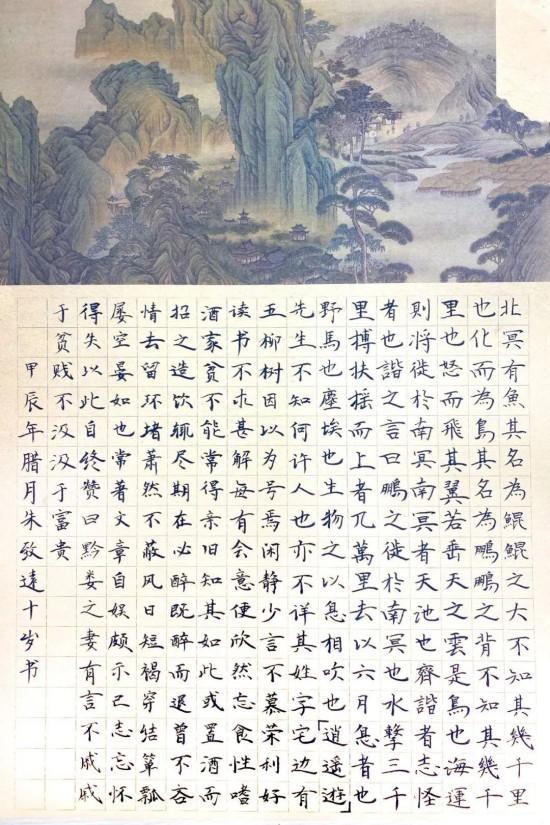 北冥有魚其名為鯤鯤之大不知其幾千里
也化而為鳥其名為鵬鵬之背不知其幾千
里也怒而飛其翼若垂天之雲是鳥也海運
則將徙於南冥南冥者天池也齊諧者志怪
者也諧之言曰鵬之徙於南冥也水擊三千
里搏扶摇而上者九萬里去以六月息者也
野馬也塵埃也生物之以息相吹也「逍遥遊」
先生不知何许人也亦不详其姓字宅边有
五柳树因以为号焉闲静少言不慕荣利好
读书不求甚解每有会意便欣然忘食性嗜
酒家贫不能常得亲旧知其如此或置酒而
招之造饮辄尽期在必醉既醉而退曾不吝
情去留环堵萧然不蔽风日短褐穿结箪瓢
屡空晏如也常著文章自娱颇示己志忘怀
得失以此自终赞曰黔娄之妻有言不戚戚
于贫贱不汲汲于富贵
甲辰年腊月朱致遠十岁书